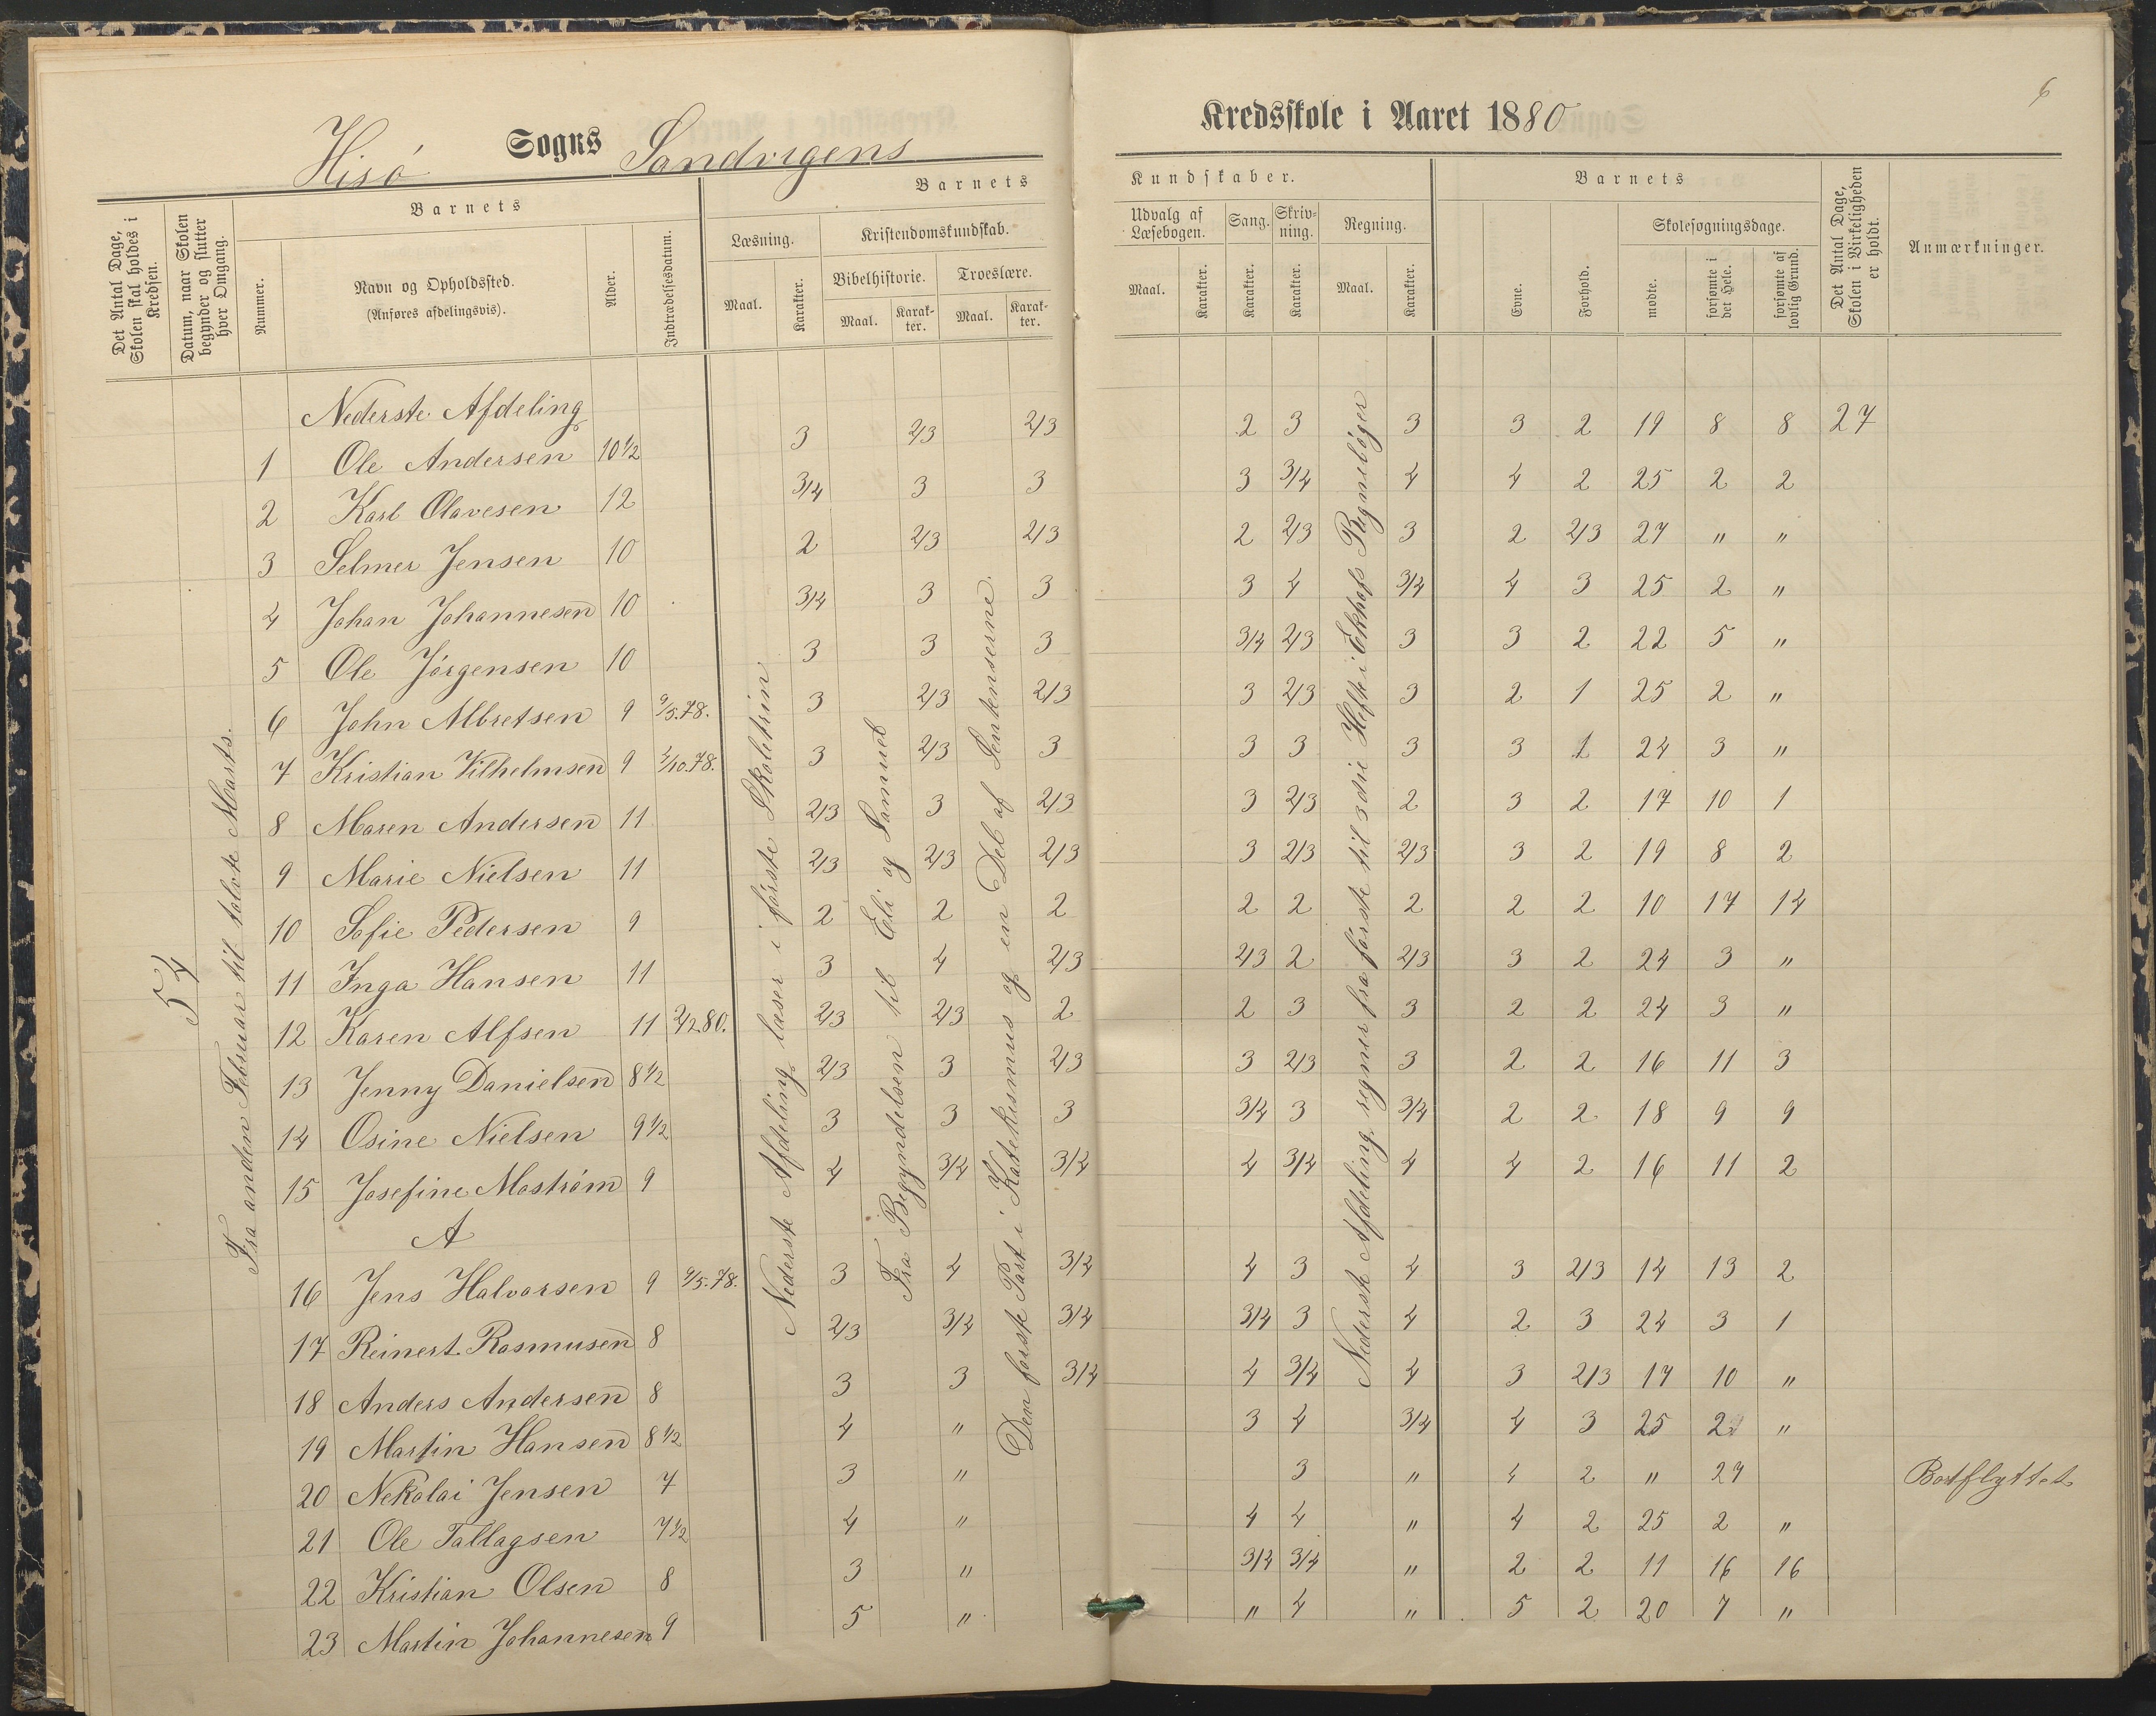 6
Hisö Sogns Sandvigens Kredsskole i Aaret 1880
Det Antal Dage, Skolen skal holdes i Kredsen.
Datum, naar Skolen begynder og slutter hver Omgang.
Barnets
Nummer.
Navn og Opholdssted.
(Anføres afdelingsvis).
Alder.
Indtrædelsesdatum.
Barnets Kundskaber.
Læsning.
Maal.
Karakter.
Kristendomskundskab.
Bibelhistorie.
Maal.
Karakter.
Troeslære.
Maal.
Karakter.
Udvalg af Læsebogen.
Maal.
Karakter.
Sang.
Karakter.
Skrivning.
Karakter.
Regning.
Maal.
Karakter.
Barnets
Evne.
Forhold.
Skolesøgningsdage.
mødte.
forsømte i det Hele.
forsømte af lovlig Grund.
Det Antal Dage, Skolen i Virkeligheden er holdt.
Anmærkninger.
54
Fra anden Februar til tolvte Marts.
Nederste Afdeling læser i förste Skoletrin
Fra Begyndelsen til Eli og Samuel
Den förste Part i Katekismus og en Del af Sentenserne.
Nederste Afdeling regner fra förste til 3die Hefte i Ekhofs Regnebøger
Nederste Afdeling
1 Ole Andersen 10½ 3 2/3 2/3 2 3 3 3 2 19 8 8 27
2 Karl Olavesen 12 3/4 3 3 3 3/4 4 4 2 25 2 2
3 Selmer Jensen 10 2 2/3 2/3 2 2/3 3 2 2/3 27 " "
4 Johan Johannesen 10 3/4 3 3 3 4 3/4 4 3 25 2 "
5 Ole Jörgensen 10 3 3 3 3/4 2/3 3 3 2 22 5 "
6 John Albretsen 9 9/5.78. 3 2/3 2/3 3 2/3 3 2 1 25 2 "
7 Kristian Vilhelmsen 9 /10.78. 3 2/3 3 3 3 3 3 1 24 3 "
8 Maren Andersen 11 2/3 3 2/3 3 2/3 2 3 2 17 10 1
9 Marie Nielsen 11 2/3 2/3 2/3 3 2/3 2/3 3 2 19 8 2
10 Sofie Pedersen 9 2 2 2 2 2 2 2 2 10 17 14
11 Inga Hansen 11 3 4 2/3 2/3 2 2/3 3 2 24 3 "
12 Karen Alfsen 11 2/2.80. 2/3 2/3 2 2 3 3 2 2 24 3 "
13 Jenny Danielsen 8½ 2/3 3 2/3 3 2/3 3 2 2 16 11 3
14 Osine Nielsen 9½ 3 3 3 3/4 3 3/4 2 2 18 9 9
15 Josefine Moström 9 4 3/4 3/4 4 3/4 4 4 2 16 11 2
A
16 Jens Halvorsen 9 9/5.78. 3 4 3/4 4 3 4 3 2/3 14 13 2
17 Reinert Rasmusen 8 2/3 3/4 3/4 3/4 3 4 2 3 24 3 1
18 Anders Andersen 8 3 3 3/4 4 3/4 4 3 2/3 17 10 "
19 Martin Hansen 8½ 4 " 3 4 3/4 4 3 25 2 "
20 Nekolai Jensen 7 3 " 3 " 4 2 " 27 Bortflyttet
21 Ole Tallagsen 7½ 4 " 4 4 " 4 2 25 2 "
22 Kristian Olsen 8 3 " 3/4 3/4 " 2 2 11 16 16
23 Martin Johannesen 9 5 " " 4 " 5 2 20 7 "